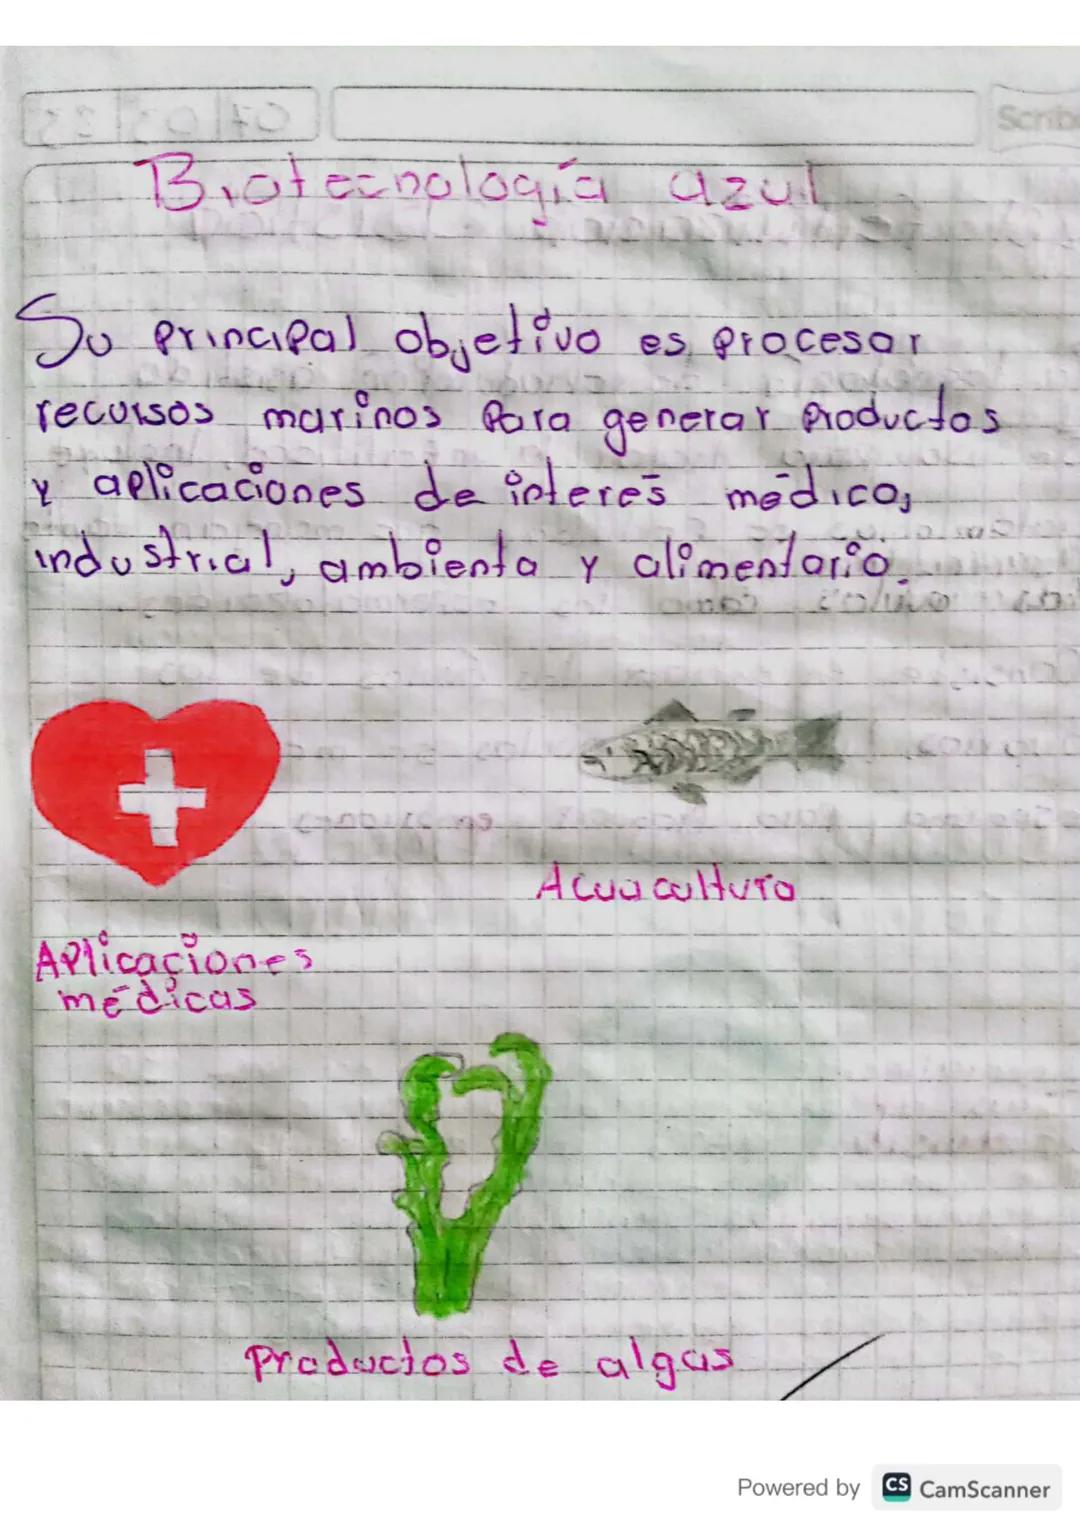 Scrib
Biotecnología azul
Su principal objetivo es procesar
recursos marinos para generar productos
y aplicaciones de interés médico,
industrial, ambienta y alimentario.
Acuacultura
Aplicaciones
médicas
Productos de algas
Powered by CS CamScanner